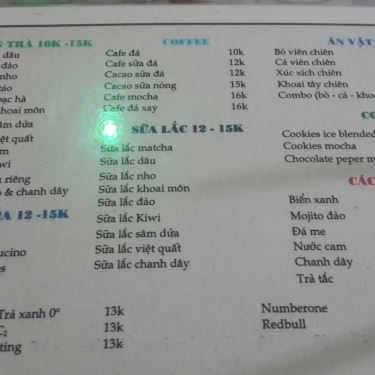 TRÀ 10K -15K
dâu
đào
nho
táo
bạc hà
khoai môn
sâm dứa
việt quất
riêng
& chanh dây
12 -15K
COFFEE
Cafe đá 10k
Cafe sữa đá 12k
Cacao sữa đá 12k
Cacao sữa nóng 15k
Cafe mocha 16k
Cafe đá xay 16k
SỮA LẮC 12 - 15K
Sữa lắc matcha
Sữa lắc dâu
Sữa lắc nho
Sữa lắc khoai môn
Sữa lắc đào
Sữa lắc Kiwi
Sữa lắc sâm dứa
Sữa lắc việt quất
Sữa lắc chanh dây
ĂN VẶT
Bò viên chiên
Cá viên chiên
Xúc xích chiên
Khoai tây chiên
Combo (bò - cá - kho
CO
Cookies ice blended
Cookies mocha
Chocolate peper m
CÁC
Biển xanh
Mojito đào
Đá me
Nước cam
Chanh dây
Trà tắc
Trà xanh 0° 13k
C2 13k
ting 13k
Numberone
Redbull